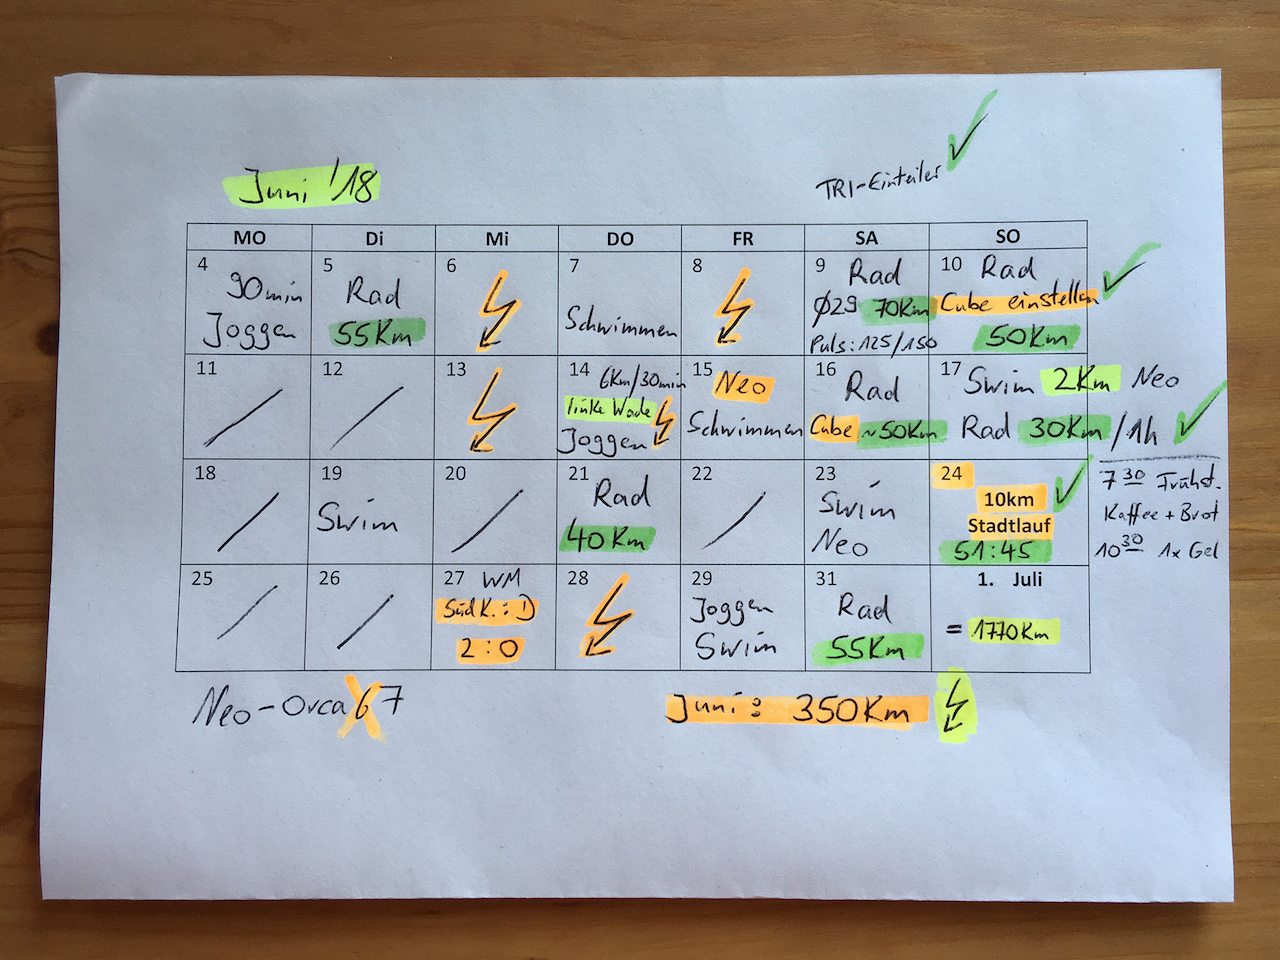 Juni '18
TRI-Einteiler
MO Di Mi DO FR SA SO
4 90min Joggen
5 Rad 55Km
6
7 Schwimmen
8
9 Rad
Ø29 70Km
Puls: 125/150
10 Rad
Cube einstellen
50Km
11
12
13
14 6Km/30min
linke Wade
Joggen
15 Neo
Schwimmen
16 Rad
Cube ~50Km
17 Swim 2Km Neo
Rad 30Km/1h
18
19 Swim
20
21 Rad
40Km
22
23 Swim
Neo
24
10km
Stadtlauf
51:45
7 30 Frühst.
Kaffee + Brot
10 30 1x Gel
25
26
27 WM
Süd K.: D
2:0
28
29 Joggen
Swim
31 Rad
55Km
1. Juli
= 1770Km
Neo-Orca 6 7
Juni: 350Km